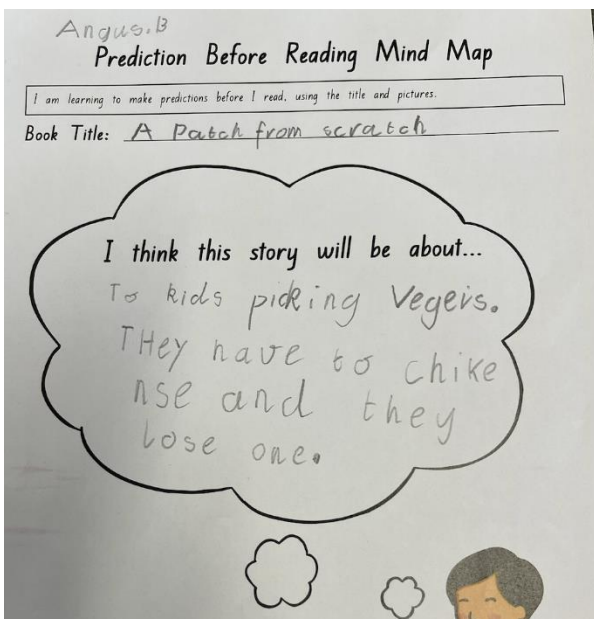 Angus.B
Prediction Before Reading Mind Map
I am learning to make predictions before I read, using the title and pictures.
Book Title: A Patch from scratch
I think this story will be about...
To kids picking Vegeis.
THey have to chike
nse and they
lose one.